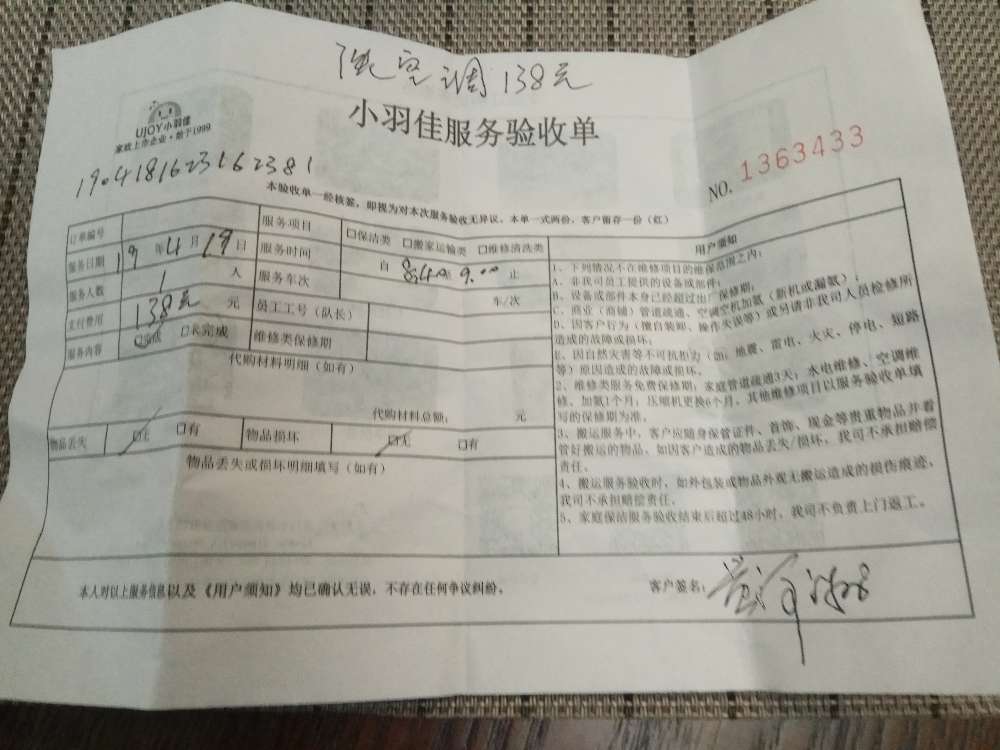 洗空调138元
UJOY小羽佳
家政上市企业·始于1999
小羽佳服务验收单
1904181623162381
NO. 1363433
本验收单一经核签，即视为对本次服务验收无异议。本单一式两份，客户留存一份（红）
订单编号 服务项目 □保洁类 □搬家运输类 □维修清洗类
服务日期 19年4月19日 服务时间 自 8:40 9:00 止
服务人数 1 人 服务车次 车/次
支付费用 138元 元 员工工号（队长）
服务内容 □完成 □未完成 维修类保修期
代购材料明细（如有）
代购材料总额： 元
物品丢失 □无 □有 物品损坏 □无 □有
物品丢失或损坏明细填写（如有）
用户须知
1、下列情况不在维修项目的维保范围之内：
A、非我司员工提供的设备或部件；
B、设备或部件本身已经超过出厂保修期；
C、商业（商铺）管道疏通、空调空机加氨（新机或漏氨）；
D、因客户行为（擅自装卸、操作失误等）或另请非我司人员检修所
造成的故障或损坏；
E、因自然灾害等不可抗拒力（如：地震、雷电、火灾、停电、短路
等）原因造成的故障或损坏。
2、维修类服务免费保修期：家庭管道疏通3天；水电维修、空调维
修、加氨1个月；压缩机更换6个月，其他维修项目以服务验收单填
写的保修期为准。
3、搬运服务中，客户应随身保管证件、首饰、现金等贵重物品并看
管好搬运的物品，如因客户造成的物品丢失/损坏，我司不承担赔偿
责任。
4、搬运服务验收时，如外包装或物品外观无搬运造成的损伤痕迹，
我司不承担赔偿责任。
5、家庭保洁服务验收结束后超过48小时，我司不负责上门返工。
本人对以上服务信息以及《用户须知》均已确认无误，不存在任何争议纠纷。
客户签名：